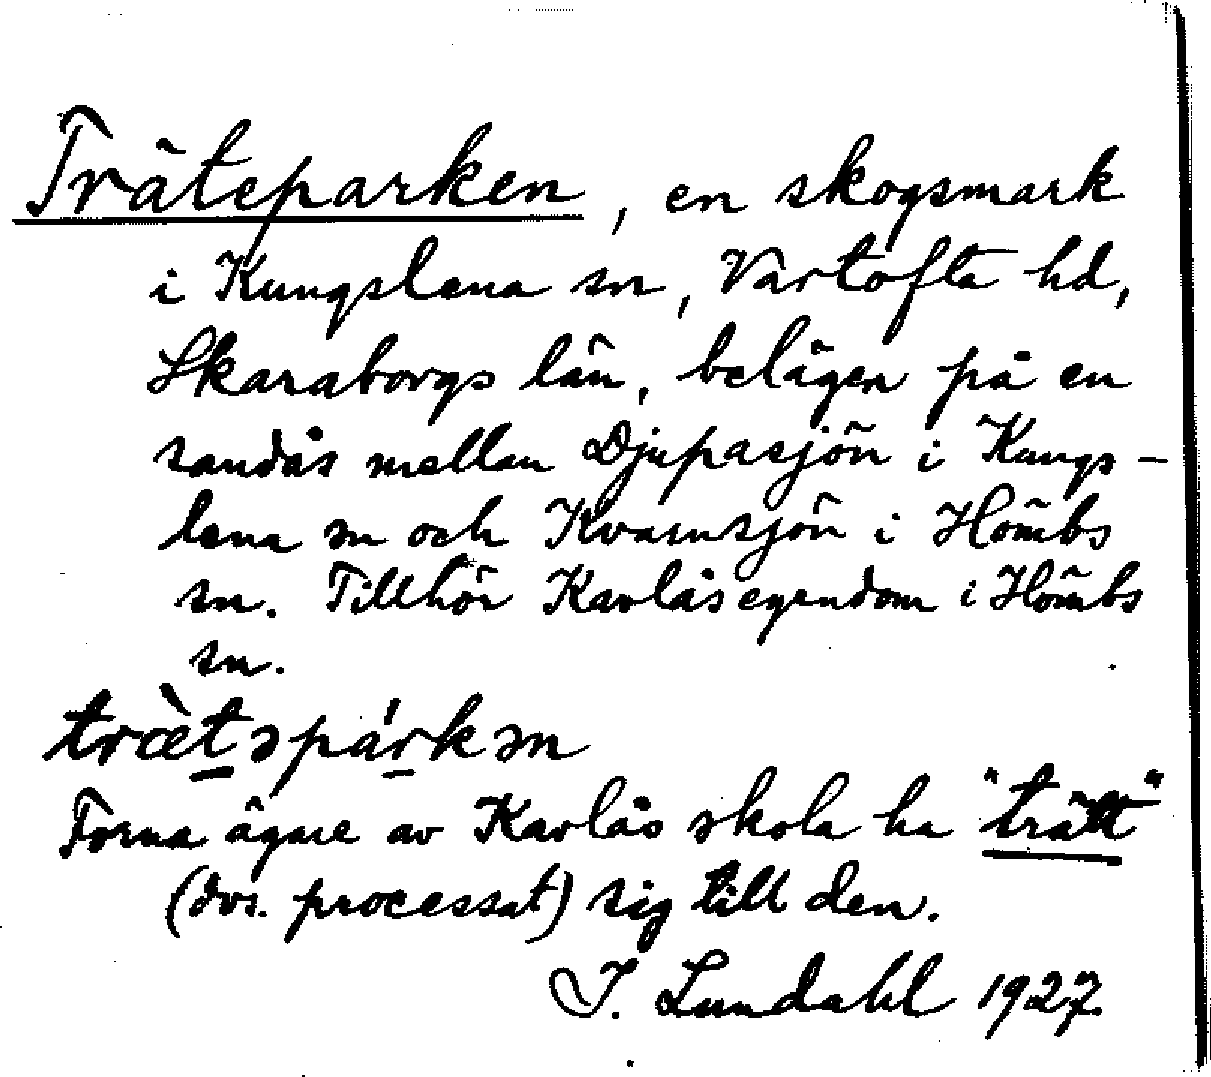 Träteparken, en skogsmark
i Kungslena sn, Vartofta hd,
Skaraborgs län, belägen på en
sandås mellan Djupasjön i Kungs-
lena sn och Kvarnsjön i Hömbs
sn. Tillhör Kavlås egendom i Hömbs
sn.
træ̀təspárkən
Forna ägare av Kavlås skola ha "trätt"
(dvs. processat) sig till den.
I. Lundahl 1927.